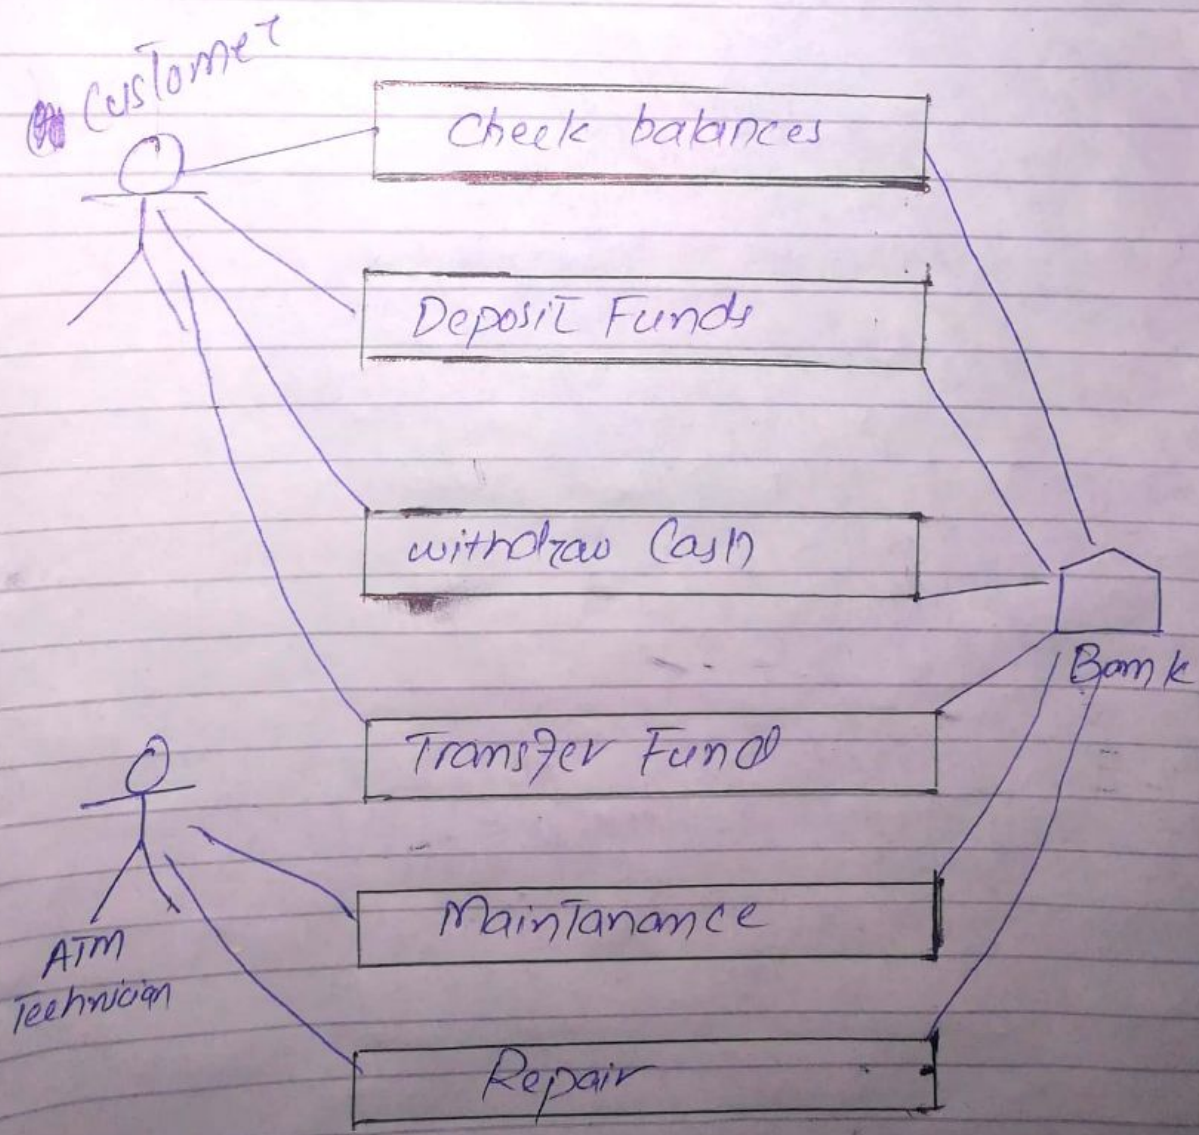 Customer
Check balances
Deposit Funds
withdraw Cash
Bank
Transfer Fund
ATM
Technician
Maintanance
Repair